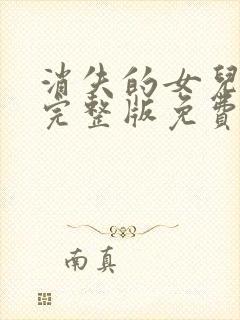 消失的女兒
完整版免費
南真